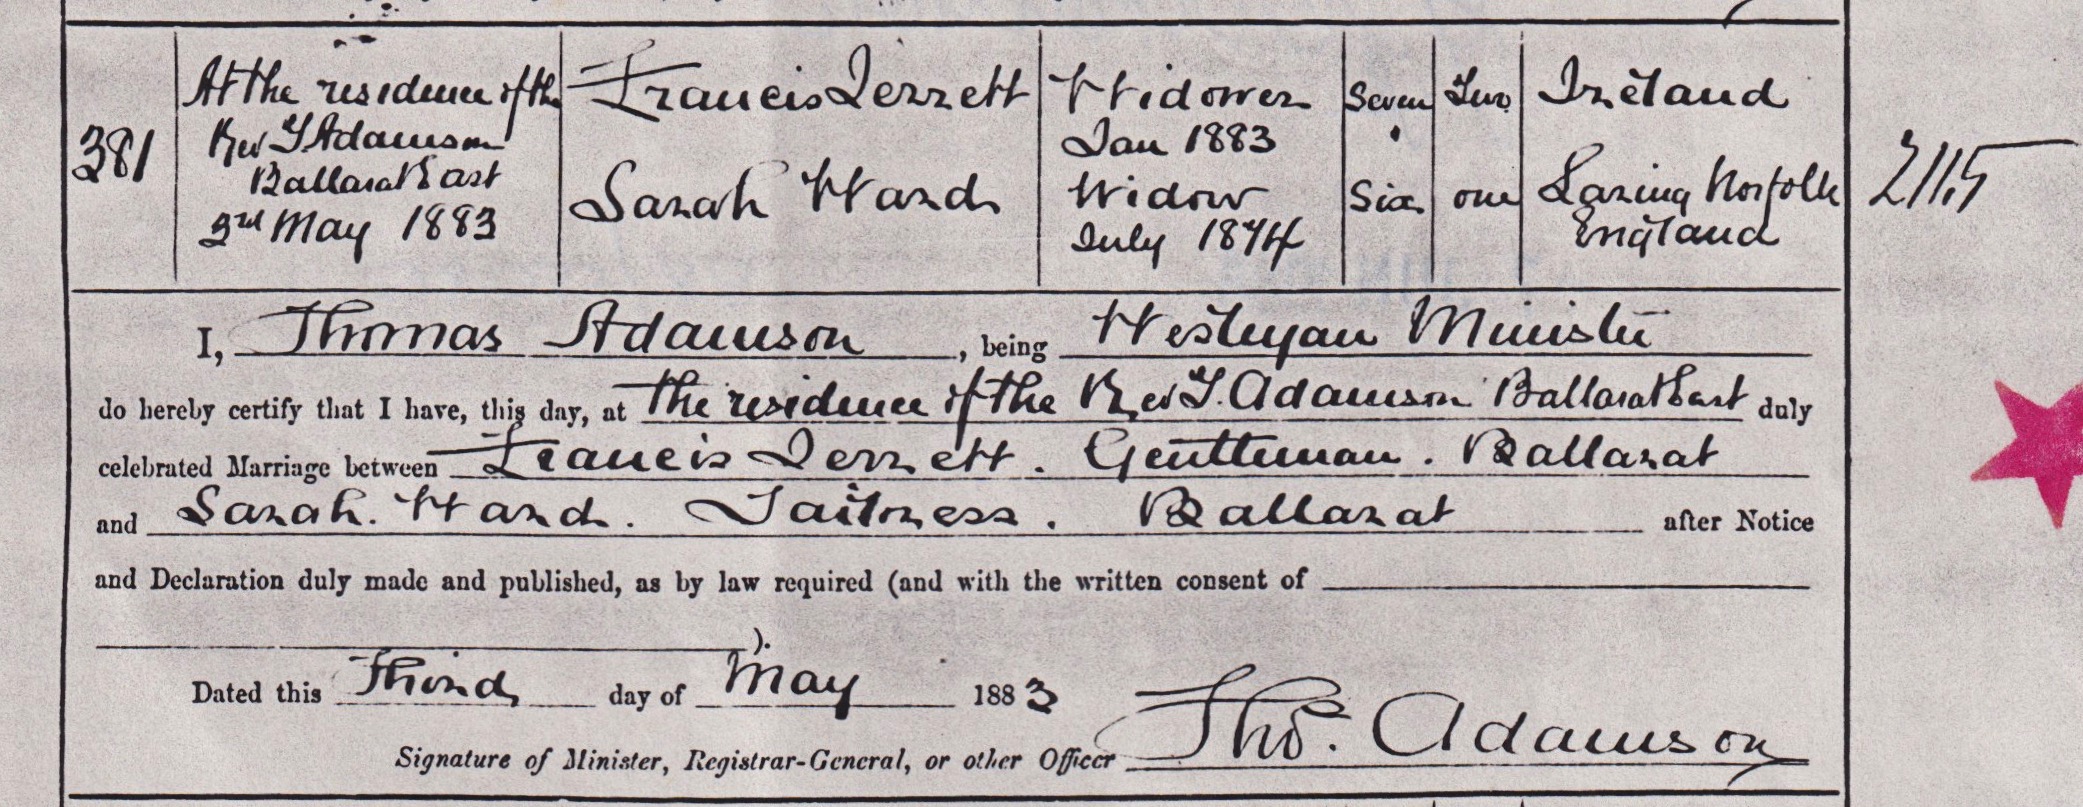 381
At the residence of the
Rev T Adamson
Ballarat East
3rd May 1883
Francis Jerrett
Sarah Ward
Widower
Jan 1883
Widow
July 1874
Seven
Six
Two
one
Ireland
Laring Norfolk
England
2115
I, Thomas Adamson, being Wesleyan Minister
do hereby certify that I have, this day, at the residence of the Rev T. Adamson Ballarat East duly
celebrated Marriage between Francis Jerrett. Gentleman. Ballarat
and Sarah. Ward. Tailoress. Ballarat after Notice
and Declaration duly made and published, as by law required (and with the written consent of
).
Dated this Third day of May 1883
Signature of Minister, Registrar-General, or other Officer Thos. Adamson